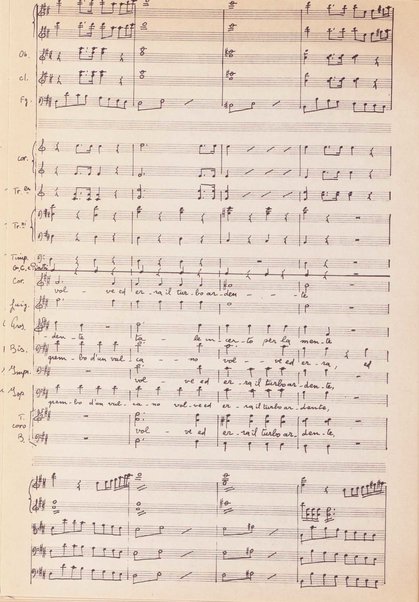 Ob.
Cl.
Fg.
Cor.
Tr.be
Tr.ni
Timp.
G.C. e Piatti
Cor.
vol - ve ed er - ra il tur - bo ar - den - te
den - te ta - le in - cer - to per la men - te
Bis.
grem - bo d'un vul - ca - no vol - ve ed er - ra, ed
vol - ve ed er - ra il turbo ar - den - te,
grem - bo d'un vul - ca - no vol - ve ed er - ra il turbo ar - dente,
T.
coro
B.
vol - ve ed er - ra il turbo ar - den - te,